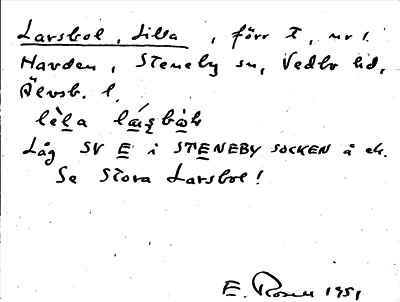 Larsbol, Lilla, förr T, nr 1
Havden, Steneby sn, Vedbo hd,
Älvsb. l.
lèla lársbòl
Låg SV E i STENEBY SOCKEN å ek.
Se Stora Larsbol!
E. Rosell 1951